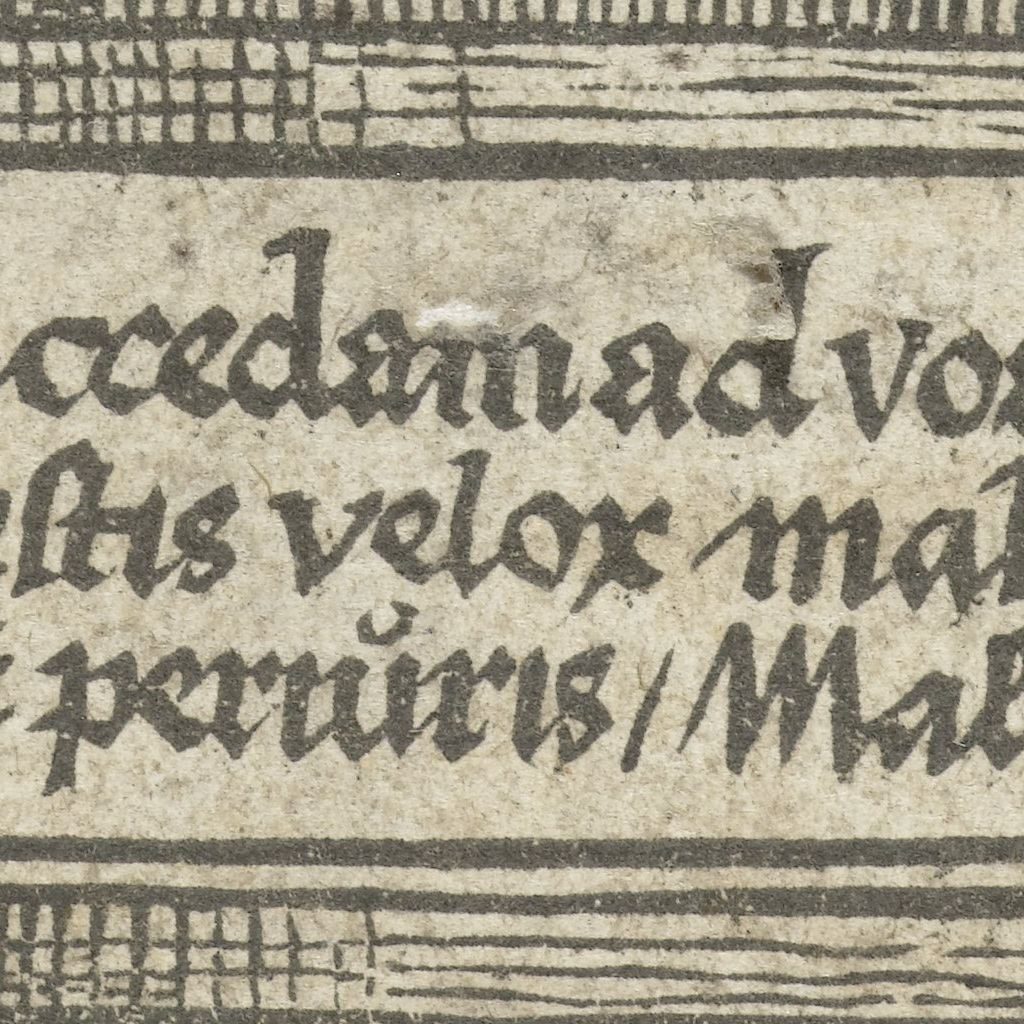 ccedam ad vos
eſtis velox mal
periŭris / Mal